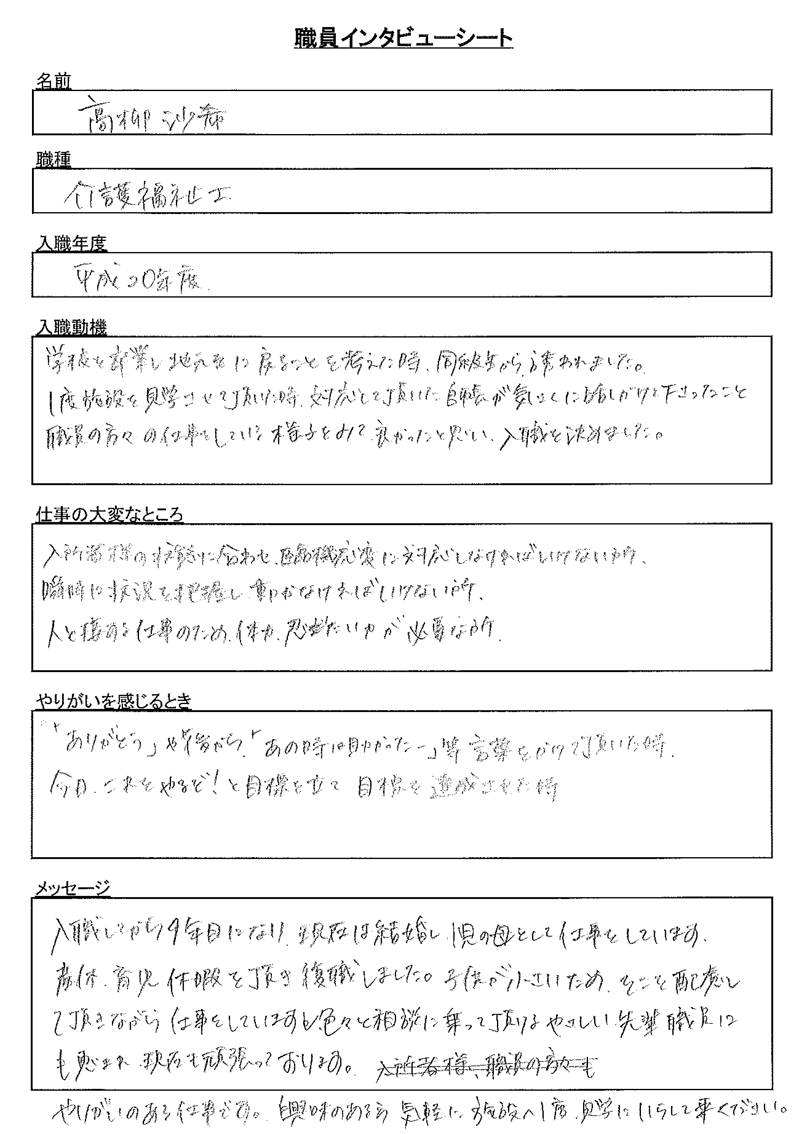 職員インタビューシート
名前
高柳 沙希
職種
介護福祉士
入職年度
平成20年度
入職動機
学校を卒業し地元に戻ることを考えた時、同級生から誘われました。
1度施設を見学させて頂いた時、対応して頂いた師長が気さくに話しかけて下さったこと
職員の方々の仕事をしている様子をみて良かったと思い、入職を決めました。
仕事の大変なところ
入所者様の状態に合わせ、臨機応変に対応しなければいけない所、
瞬時に状況を把握し動かなければいけない所、
人と接する仕事のため、体力、忍たい力が必要な所。
やりがいを感じるとき
「ありがとう」や後から「あの時は助かったー」等言葉をかけて頂いた時、
今日、これをやるぞ!と目標を立て目標を達成させた時
メッセージ
入職してから9年目になり、現在は結婚し、1児の母として仕事をしています。
産休、育児休暇を頂き復職しました。子供が小さいため、そこを配慮し
て頂きながら仕事をしていますが色々と相談に乗って頂けるやさしい先輩職員に
も恵まれ、現在も頑張っております。入所者様、職員の方々も
やりがいのある仕事です。興味のある方気軽に施設へ1度、見学にいらして来てください。